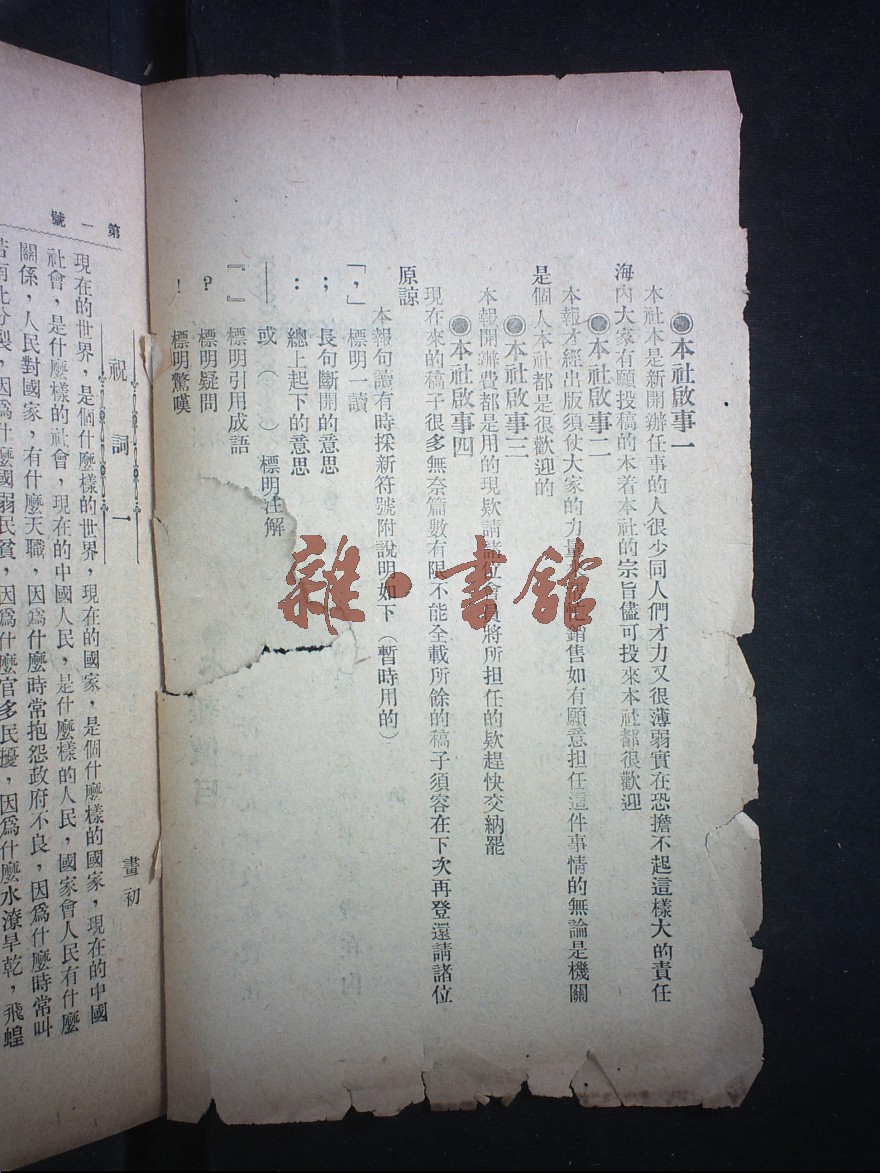 ●本社啟事一
本社本是新開辦任事的人很少同人們才力又很薄弱實在恐擔不起這樣大的責任
海內大家有願投稿的本着本社的宗旨儘可投來本社都很歡迎
●本社啟事二
本報才經出版須仗大家的力量 銷售如有願意担任這件事情的無論是機關
是個人本社都是很歡迎的
●本社啟事三
本報開辦費都是用的現欵請諸位會員將所担任的欵趕快交納罷
●本社啟事四
現在來的稿子很多無奈篇數有限不能全載所餘的稿子須容在下次再登還請諸位
原諒
本報句讀有時採新符號附說明如下（暫時用的）
「，」標明一讀
； 長句斷開的意思
： 總上起下的意思
—— 或（ ）標明注解
『』 標明引用成語
？ 標明疑問
！ 標明驚嘆
雜·書館
第一號
祝詞一
畫初
現在的世界，是個什麼樣的世界，現在的國家，是個什麼樣的國家，現在的中國
社會，是什麼樣的社會，現在的中國人民，是什麼樣的人民，國家會人民有什麼
關係，人民對國家，有什麼天職，因爲什麼時常抱怨政府不良，因爲什麼時常叫
苦南北分裂，因爲什麼國弱民貧，因爲什麼官多民擾，因爲什麼水潦旱乾，飛蝗